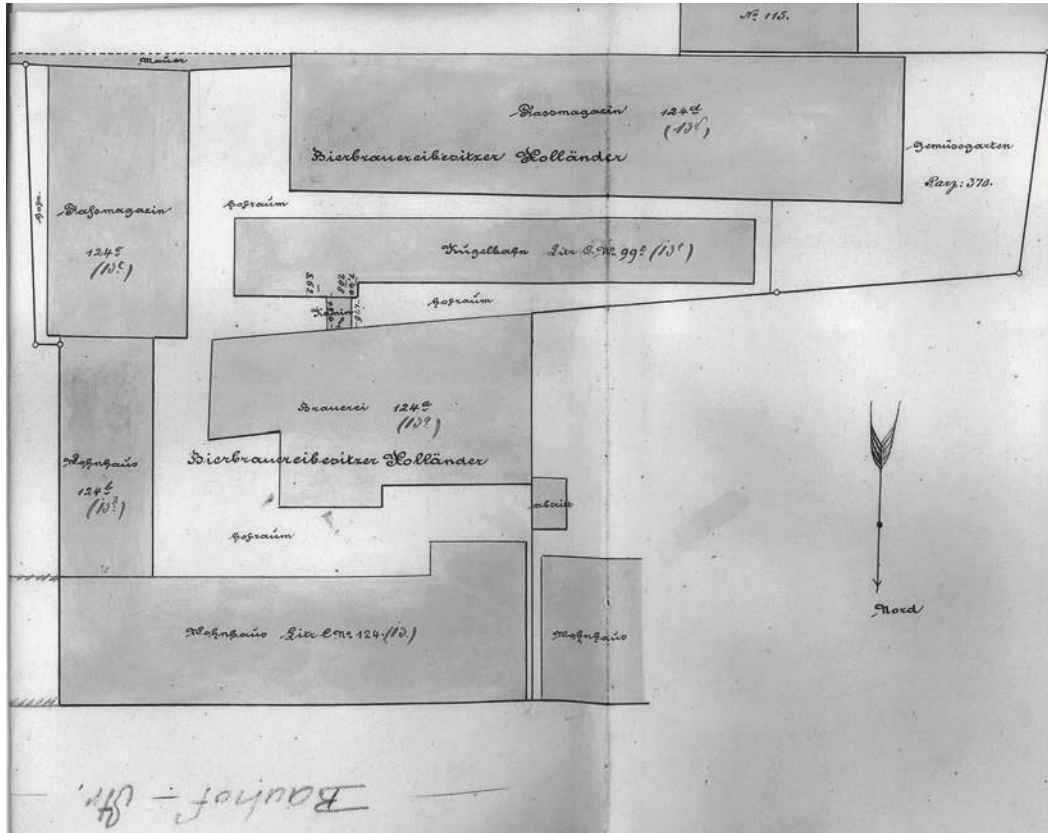 No 115.
Mauer
Fassmagazin 124d
(13d)
Bierbrauereibesitzer Holländer
Gemüsegarten
Parz: 370.
Hofr.
Faßmagazin
124c
(13c)
Hofraum
Kugelbahn Litr C. No 99e (13e)
Hofraum
Kamin
Brauerei 124a
(13a)
Bierbrauereibesitzer Holländer
Wohnhaus
124b
(13b)
Abtritt
Hofraum
Nord
Wohnhaus Litr C No 124. (13.)
Wohnhaus
Bauhof - Str.